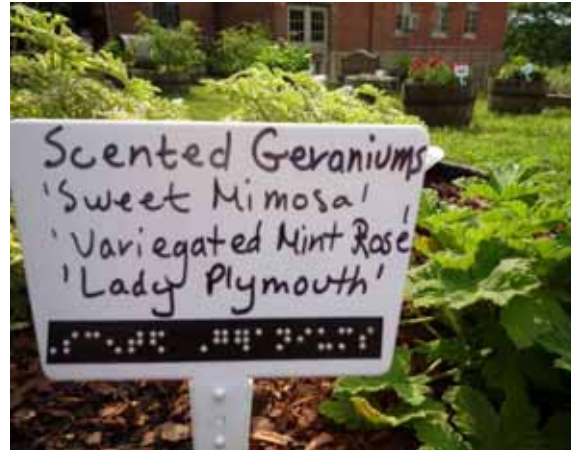 Scented Geraniums
'Sweet Mimosa'
'Variegated Mint Rose'
'Lady Plymouth'
⠠⠎⠉⠢⠞⠫ ⠠⠛⠻⠁⠝⠊⠥⠍⠎